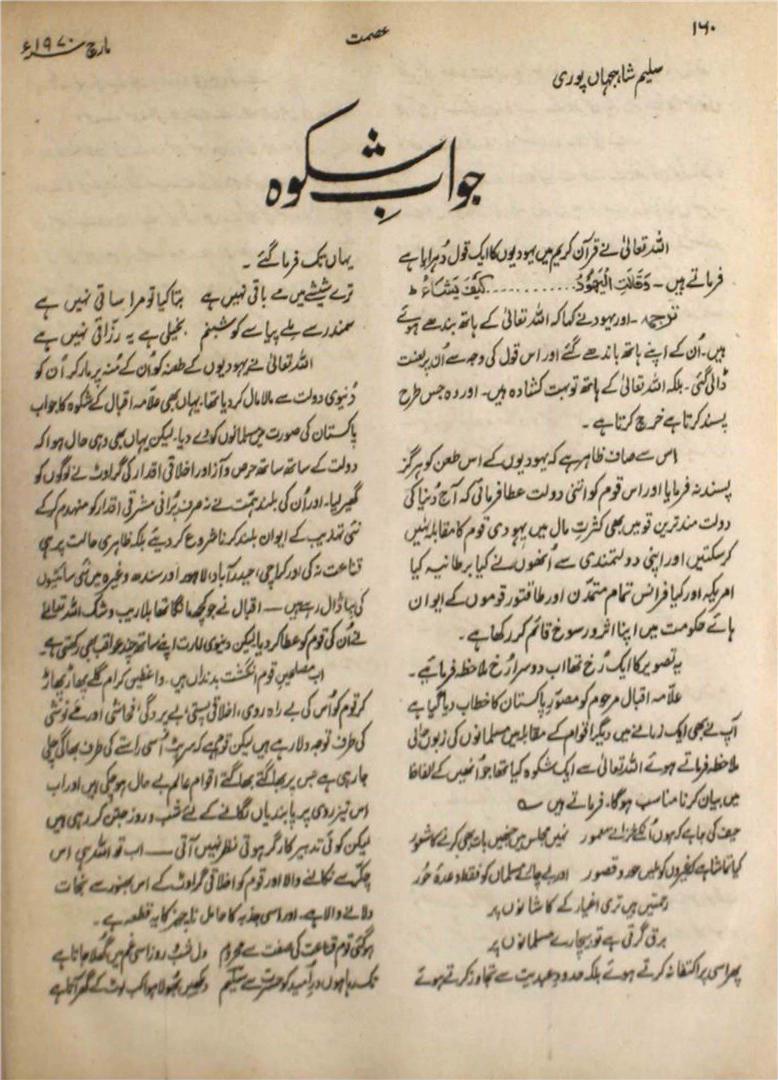 ۱۶۰
عصمت
مارچ ۱۹۷۰ء
سلیم شاہجہاں پوری
جوابِ شکوہ
اللہ تعالیٰ نے قرآن کریم میں یہودیوں کا ایک قول دُہرایا ہے
فرماتے ہیں۔ وَقَالَتِ الْیَھُوْدُ............ کَیْفَ یَشَاءُ ط
ترجمہ۔ اور یہود نے کہا کہ اللہ تعالیٰ کے ہاتھ بندھے ہوئے
ہیں۔ اُن کے اپنے ہاتھ باندھے گئے اور اس قول کی وجہ سے اُن پر لعنت
ڈالی گئی۔ بلکہ اللہ تعالیٰ کے ہاتھ تو بہت کشادہ ہیں۔ اور وہ جس طرح
پسند کرتا ہے خرچ کرتا ہے۔
اس سے صاف ظاہر ہے کہ یہودیوں کے اس طعن کو ہرگز
پسند نہ فرمایا اور اس قوم کو اتنی دولت عطا فرمائی کہ آج دُنیا کی
دولت مند ترین قومیں بھی کثرتِ مال میں یہودی قوم کا مقابلہ نہیں
کرسکتیں اور اپنی دولتمندی سے اُنھوں نے کیا برطانیہ کیا
امریکہ اور کیا فرانس تمام متمدّن اور طاقتور قوموں کے ایوان
ہائے حکومت میں اپنا اثر و رسوخ قائم کر رکھا ہے۔
یہ تصویر کا ایک رُخ تھا اب دوسرا رُخ ملاحظہ فرمائیے۔
علامہ اقبال مرحوم کو مصوّرِ پاکستان کا خطاب دیا گیا ہے
آپ نے بھی ایک زمانے میں دیگر اقوام کے مقابلہ میں مسلمانوں کی زبوں حالی
ملاحظہ فرماتے ہوئے اللہ تعالیٰ سے ایک شکوہ کیا تھا جو اُنھیں کے الفاظ
میں بیان کرنا مناسب ہوگا۔ فرماتے ہیں ؎
کی جا ہے کہ ہوں اُنکے خزانے معمور نہیں مجلس میں جنھیں بات بھی کرنے کا شعور
کیا تماشا ہے کہ کافر کو ملیں حور و قصور اور بے چارے مسلماں کو فقط وعدۂ حور
رحمتیں ہیں تری اغیار کے کاشانوں پر
برق گرتی ہے تو بیچارے مسلمانوں پر
پھر اسی پر اکتفا نہ کرتے ہوئے بلکہ حدودِ عبدیت سے تجاوز کرتے ہوئے
یہاں تک فرما گئے۔
ترے شیشے میں مے باقی نہیں ہے بتا کیا تو مرا ساقی نہیں ہے
سمندر سے ملے پیاسے کو شبنم بخیلی ہے یہ رزّاقی نہیں ہے
اللہ تعالیٰ نے یہودیوں کے طعنہ کو اُن کے مُنہ پر مار کر اُن کو
دُنیوی دولت سے مالا مال کردیا تھا۔ یہاں بھی علامہ اقبال کے شکوہ کا جواب
پاکستان کی صورت میں مسلمانوں کو دے دیا۔ لیکن یہاں بھی وہی حال ہوا کہ
دولت کے ساتھ ساتھ حرص و آز اور اخلاقی اقدار کی گراوٹ نے لوگوں کو
گھیر لیا۔ اور اُن کی بلند ہمّت نے نہ صرف پُرانی مشرقی اقدار کو منہدم کرکے
نئی تہذیب کے ایوان بلند کرنا شروع کر دیئے بلکہ ظاہری حالت پر ہی
قناعت نہ کی اور کراچی، حیدرآباد، لاہور اور سندھ وغیرہ میں نئی
کی بنا ڈال رہے ہیں — اقبال نے جو کچھ مانگا تھا بلا ریب و شک اللہ تعالیٰ
نے اُن کی قوم کو عطا کردیا لیکن دنیوی امارت اپنے ساتھ چند عواقب بھی رکھتی ہے۔
اب مصلحینِ قوم انگشت بدنداں ہیں۔ واعظینِ کرام گلے پھاڑ پھاڑ
کر قوم کو اُس کی بے راہ روی، اخلاقی پستی، بے پردگی، فحاشی اور مے نوشی
کی طرف توجہ دلا رہے ہیں لیکن قوم ہے کہ سرپٹ اُسی راستے کی طرف بھاگی چلی
جارہی ہے جس پر بھاگتے بھاگتے اقوامِ عالم بے حال ہوچکی ہیں اور اب
اس تیز روی پر پابندیاں لگانے کے لئے شب و روز جتن کر رہی ہیں
لیکن کوئی تدبیر کارگر ہوتی نظر نہیں آتی — اب تو اللہ ہی اس
چکّر سے نکالنے والا اور قوم کو اخلاقی گراوٹ کے اس بھنور سے نجات
دلانے والا ہے۔ اور اسی جذبہ کا حامل ناچیز کا یہ قطعہ ہے۔
ہوگئی قوم قناعت کی صفت سے محروم دل شب و روز اسی غم میں گھلا جاتا ہے
تک رہا ہوں درِ اُمید کو حسرت سے سلیم دیکھیں بھُولا ہوا کب لوٹ کے گھر آتا ہے